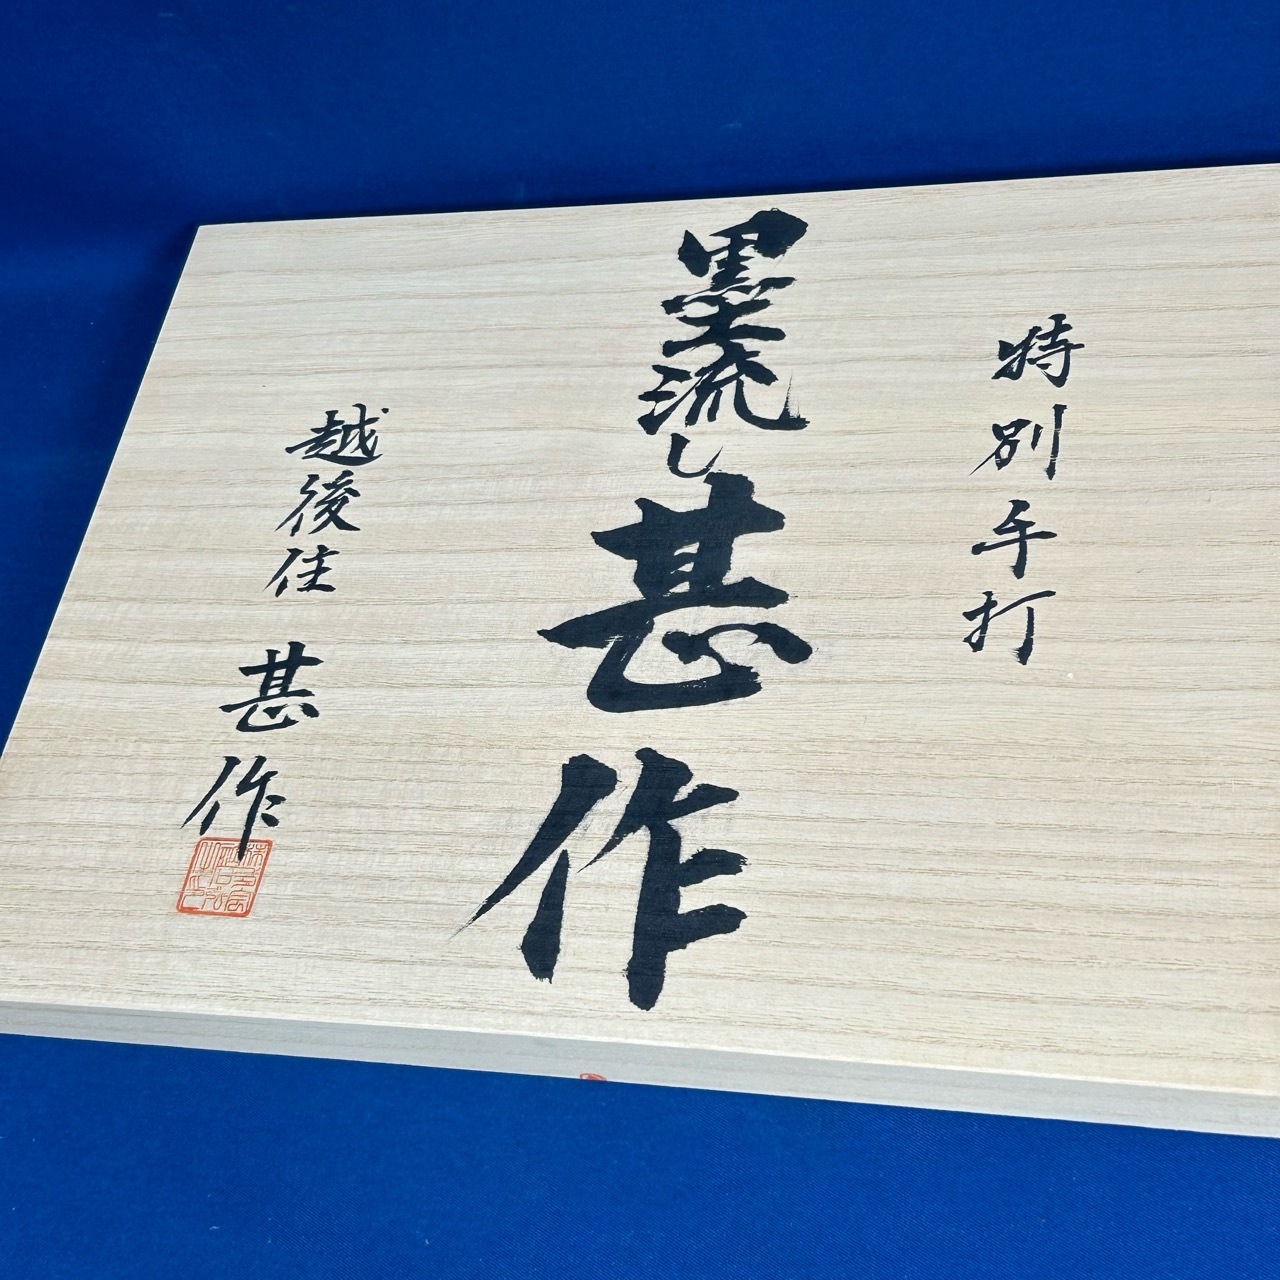 特別手打
墨流し甚作
越後住 甚作